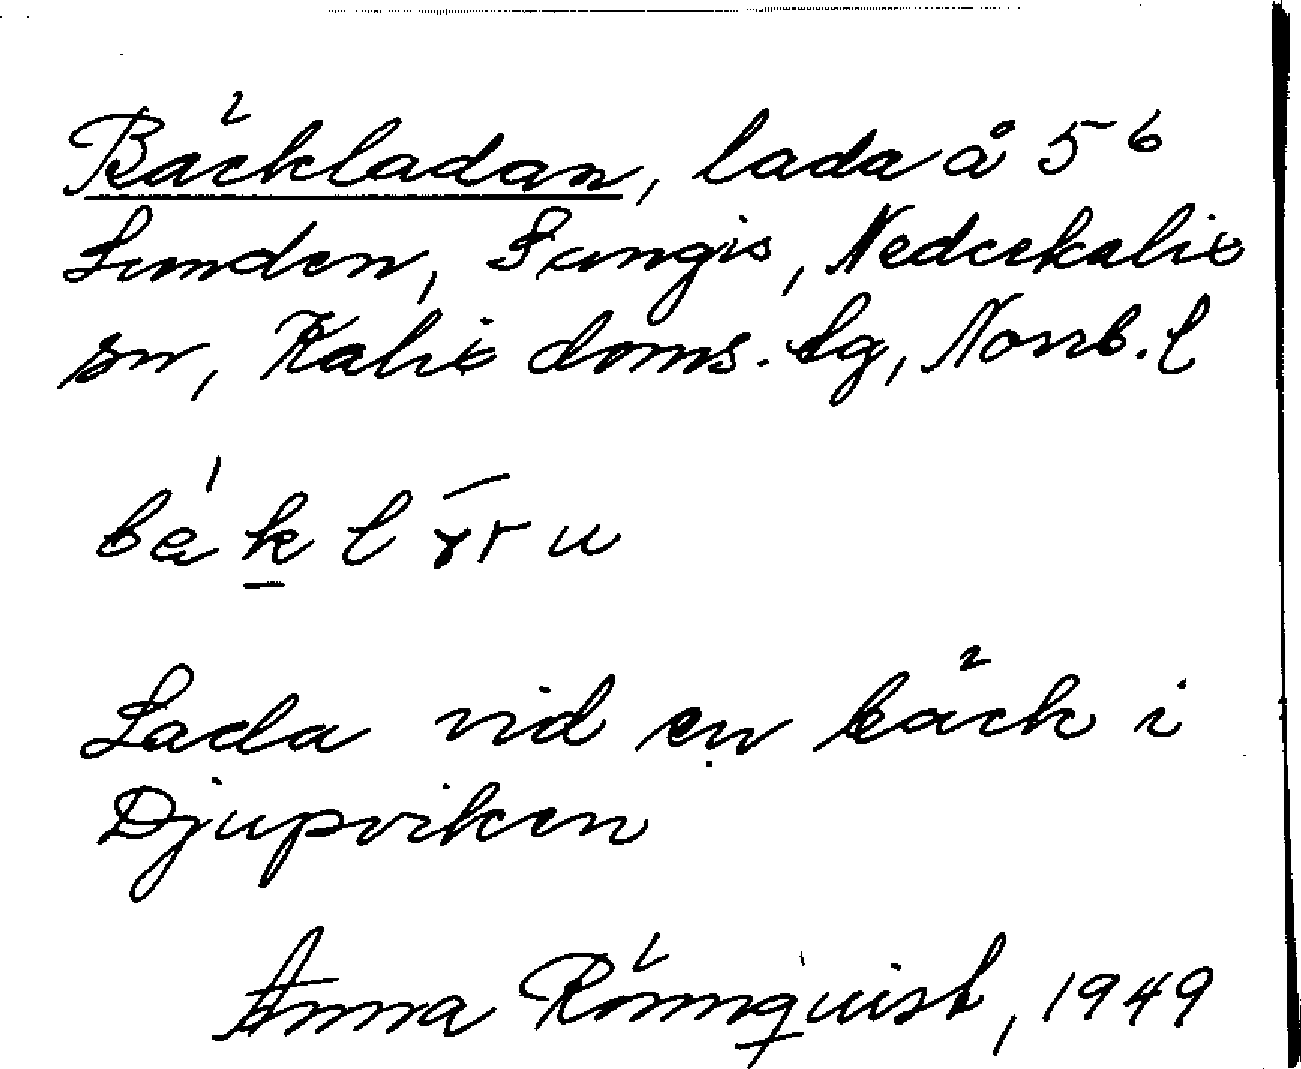 Bäckladan, lada å 5⁶
Lunden, Sangis, Nederkalix
sn, Kalix doms. lg, Norrb. l
Lada vid en bäck i
Djupviken
Anna Rönnquist, 1949